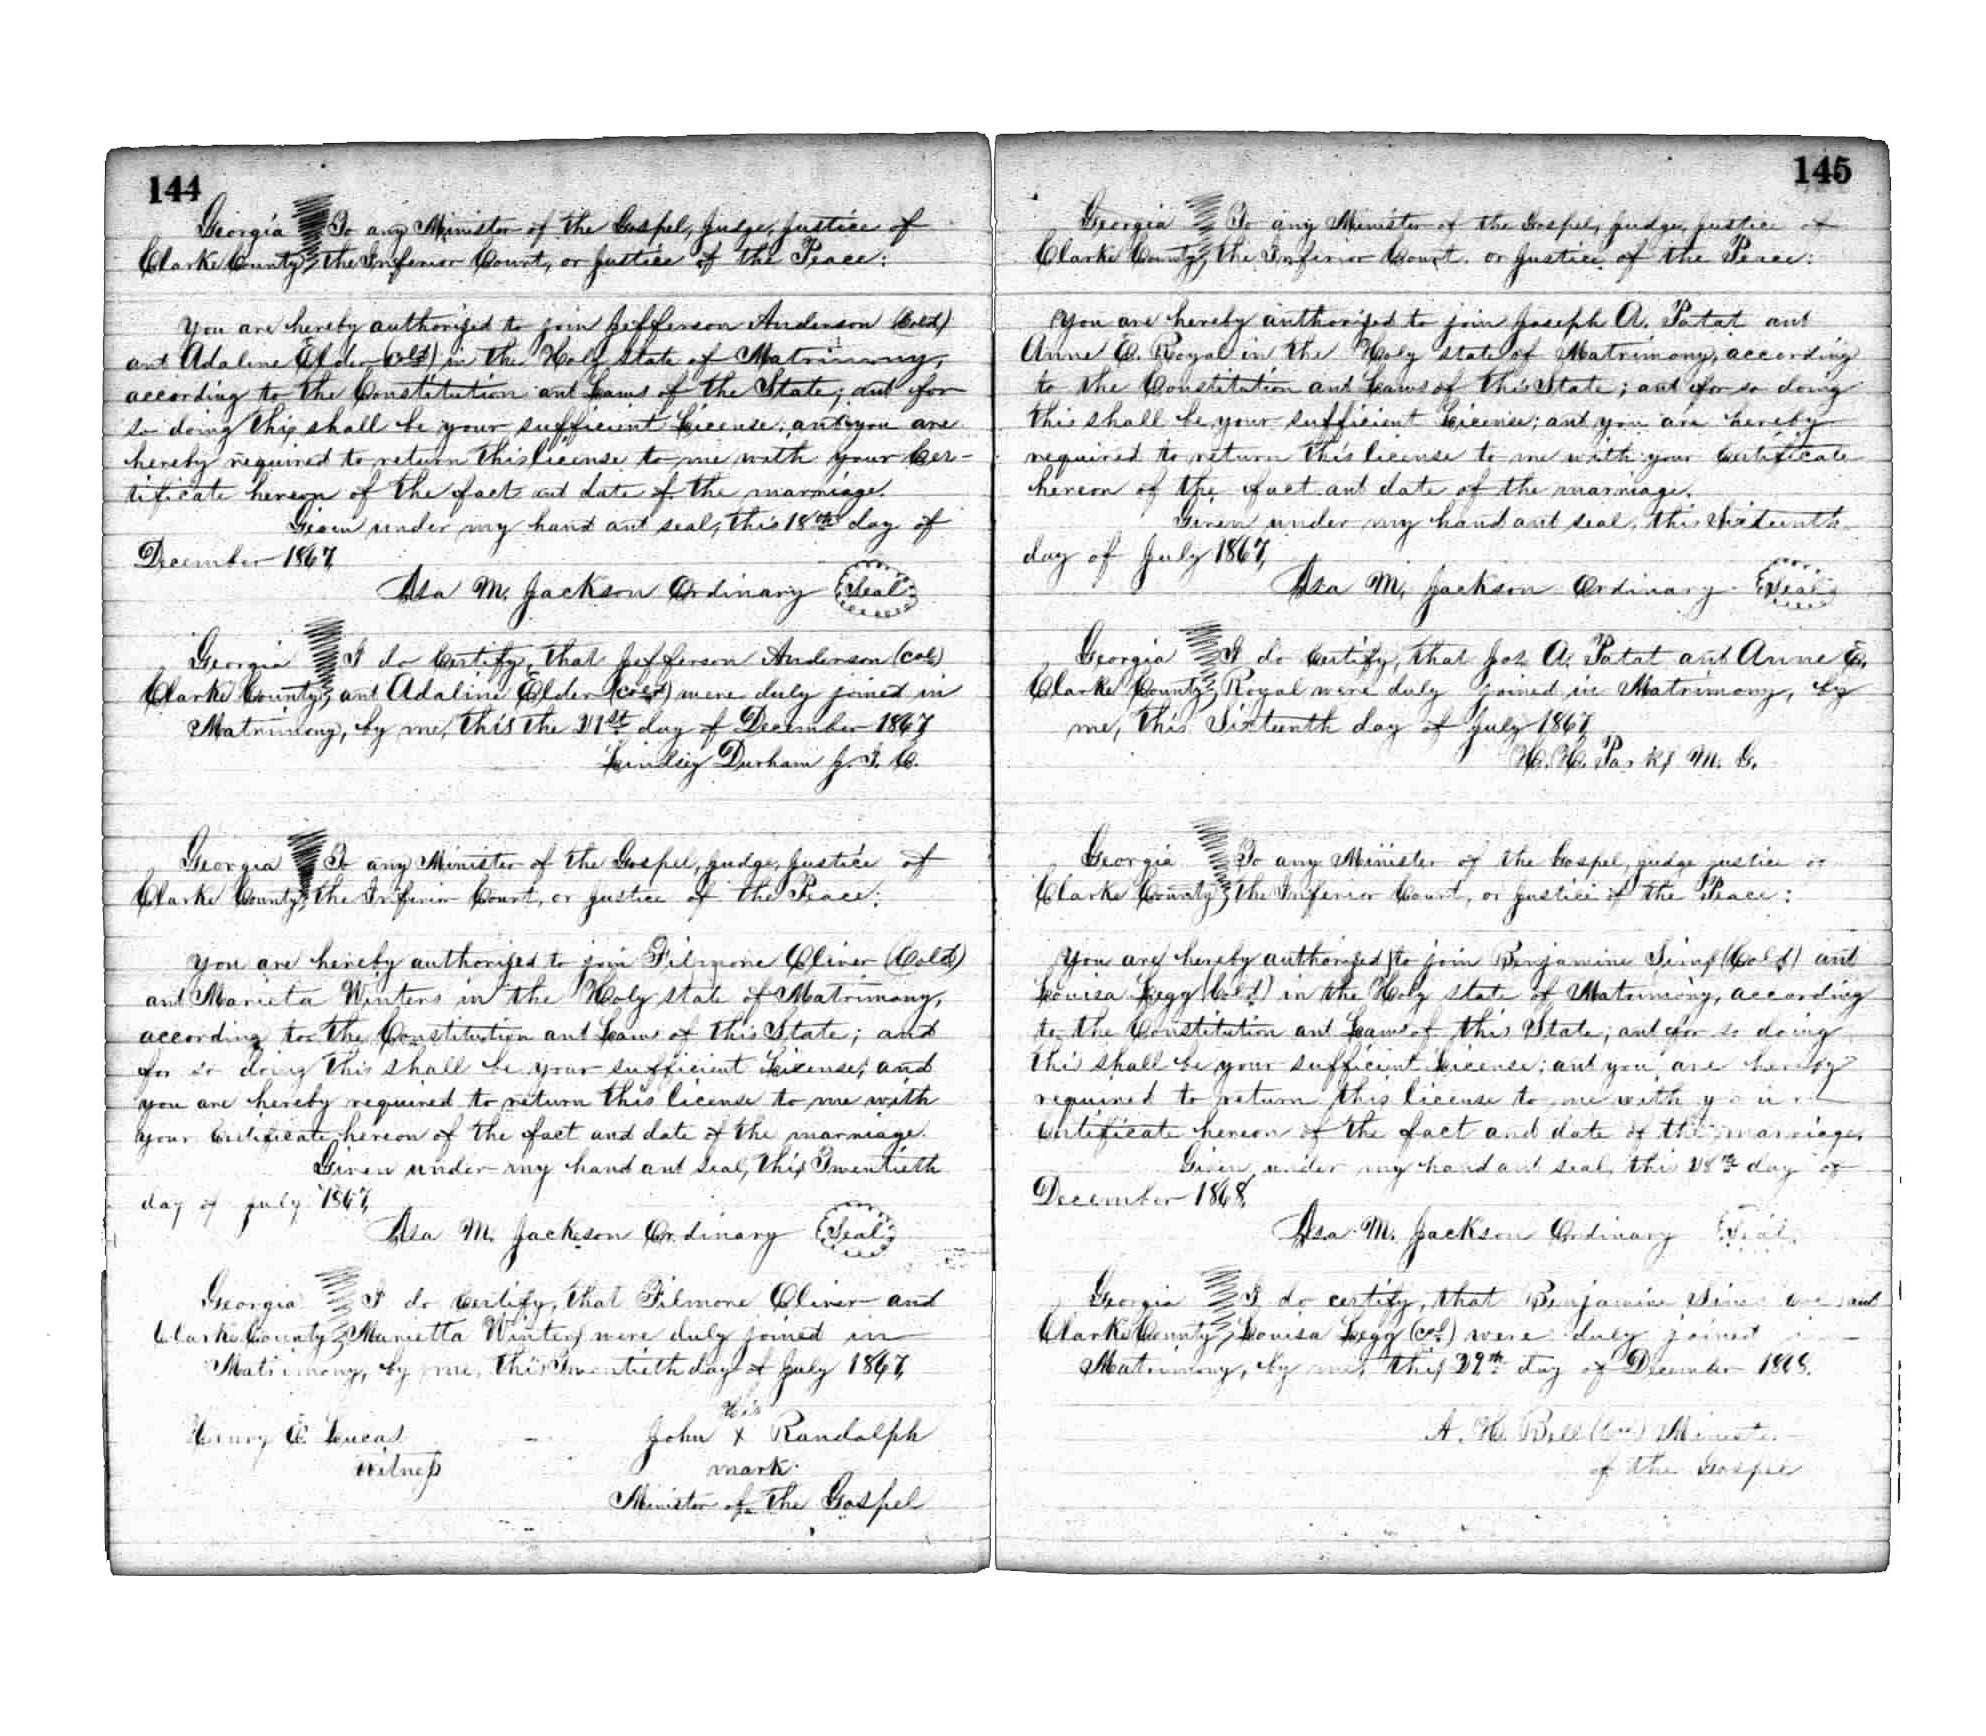 144
Georgia } To any Minister of the Gospel, Judge, Justice of
Clarke County } the Inferior Court, or Justice of the Peace:
You are hereby authorized to join Jefferson Anderson (Cold)
and Adaline Elder (cold) in the Holy state of Matrimony,
according to the Constitution and Laws of the State; and for
so doing this shall be your sufficient License; and you are
hereby required to return this license to me with your Cer-
tificate hereon of the fact and date of the marriage.
Given under my hand and seal, this 18th day of
December 1867,
Asa M. Jackson Ordinary Seal
Georgia } I do Certify, that Jefferson Anderson (Col)
Clarke County } and Adaline Elder (cold) were duly joined in
Matrimony, by me, this the 21st day of December 1867
Lindsey Durham J. I. C.
Georgia } To any Minister of the Gospel, Judge, Justice of
Clarke County } the Inferior Court, or Justice of the Peace:
You are hereby authorized to join Filmore Oliver (Cold)
and Marieta Winters in the Holy state of Matrimony,
according to the Constitution and Laws of this State; and
for so doing this shall be your sufficient License; and
you are hereby required to return this license to me with
your Certificate hereon of the fact and date of the marriage.
Given under my hand and seal, this Twentieth
day of July 1867,
Asa M. Jackson Ordinary Seal
Georgia } I do Certify, that Filmore Oliver and
Clarke County } Marietta Winters were duly joined in
Matrimony, by me, this Twentieth day of July 1867,
His
Henry C. Lucas John x Randolph
witness mark
Minister of the Gospel
145
Georgia } To any Minister of the Gospel, Judge, Justice of
Clarke County } the Inferior Court, or Justice of the Peace:
You are hereby authorized to join Joseph A. Patat and
Anne E. Royal in the Holy state of Matrimony, according
to the Constitution and Laws of this State; and for so doing
this shall be your sufficient License; and you are hereby
required to return this license to me with your Certificate
hereon of the fact and date of the marriage.
Given under my hand and seal, this Sixteenth
day of July 1867,
Asa M. Jackson Ordinary Seal
Georgia } I do Certify, that Jos. A. Patat and Anne E.
Clarke County } Royal were duly joined in Matrimony, by
me, this Sixteenth day of July 1867,
H. H. Parks M. G.
Georgia } To any Minister of the Gospel, judge justice or
Clarke County } the Inferior Court, or Justice of the Peace:
You are hereby authorized to join Benjamine Sims (Cold) and
Louisa Legg (Cold) in the Holy state of Matrimony, according
to the Constitution and Laws of this State; and for so doing
this shall be your sufficient License; and you are hereby
required to return this license to me with your
Certificate hereon of the fact and date of the marriage.
Given under my hand and seal, this 28th day of
December 1868,
Asa M. Jackson Ordinary Seal
Georgia } I do certify, that Benjamine Sims and
Clarke County } Louisa Legg (col) were duly joined in
Matrimony, by me, this 29th day of December 1868.
A. H. Bell Minister
of the Gospel